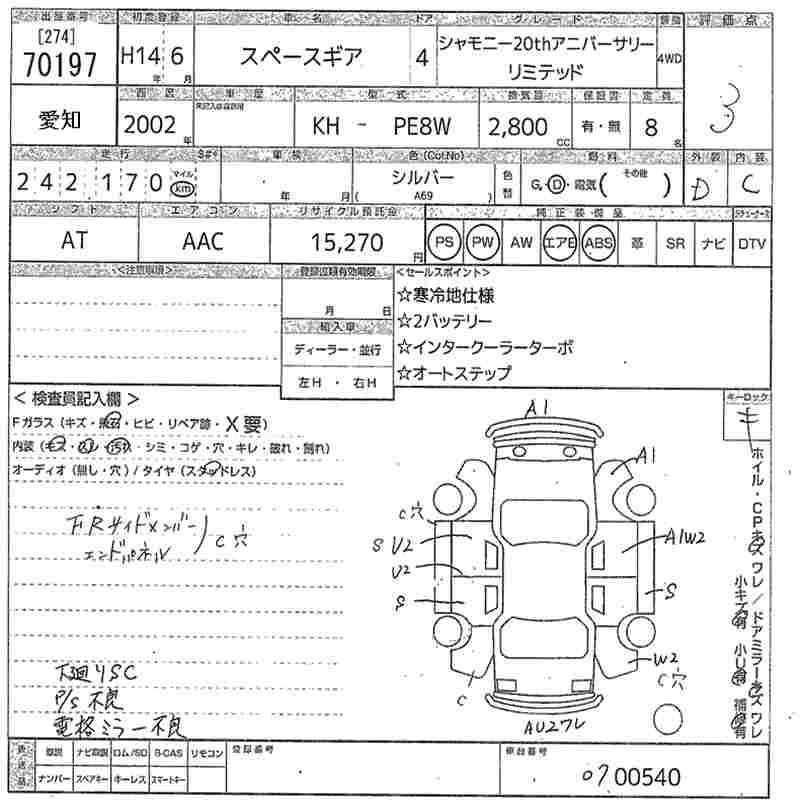 出品番号 初度登録 車名 ドア グレード 評価点
[274]
70197 H14 6 スペースギア 4 シャモニー20thアニバーサリー
リミテッド 4WD
年 月
3
愛知 西暦 車歴 型式 排気量 保証書 定員
2002年 KH - PE8W 2,800 CC 有・無 8 名
走行 車検 色(Col.No) 燃料 外装 内装
242170 マイル km 年 月 シルバー 色替 G.D・電気( その他 ) D C
( A69 )
シフト エアコン リサイクル預託金 純正装備品
AT AAC 15,270 円 PS PW AW エアB ABS 革 SR ナビ DTV
<注意事項> 登録書類有効期限 <セールスポイント>
月 日 ☆寒冷地仕様
輸入車 ☆2バッテリー
ディーラー・並行 ☆インタークーラーターボ
左H ・ 右H ☆オートステップ
< 検査員記入欄 > キーロック
Fガラス (キズ・飛石・ヒビ・リペア跡・X要) キ
内装 (キズ・スレ・汚れ・シミ・コゲ・穴・キレ・破れ・割れ)
オーディオ (無し・穴) / タイヤ (スタッドレス)
A1
A1
C穴
FRサイドメンバー
エンドパネル C穴
S U2 A1W2
U2
S S
W2
C C穴
AU27レ
下廻りSC
P/S 不良
電格ミラー不良
ホイル・CPキズ ワレ / ドアミラーキズ ワレ
小キズ有 小U有 補修有
返送品 取説 ナビ取説 ロム/SD B-CAS リモコン 登録番号 車台番号
ナンバー スペアキー キーレス スマートキー
0700540